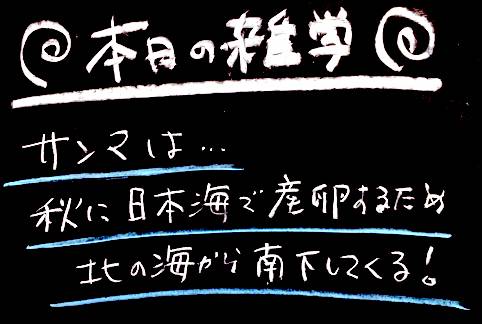 本日の雑学
サンマは…
秋に日本海で産卵するため
北の海から南下してくる！